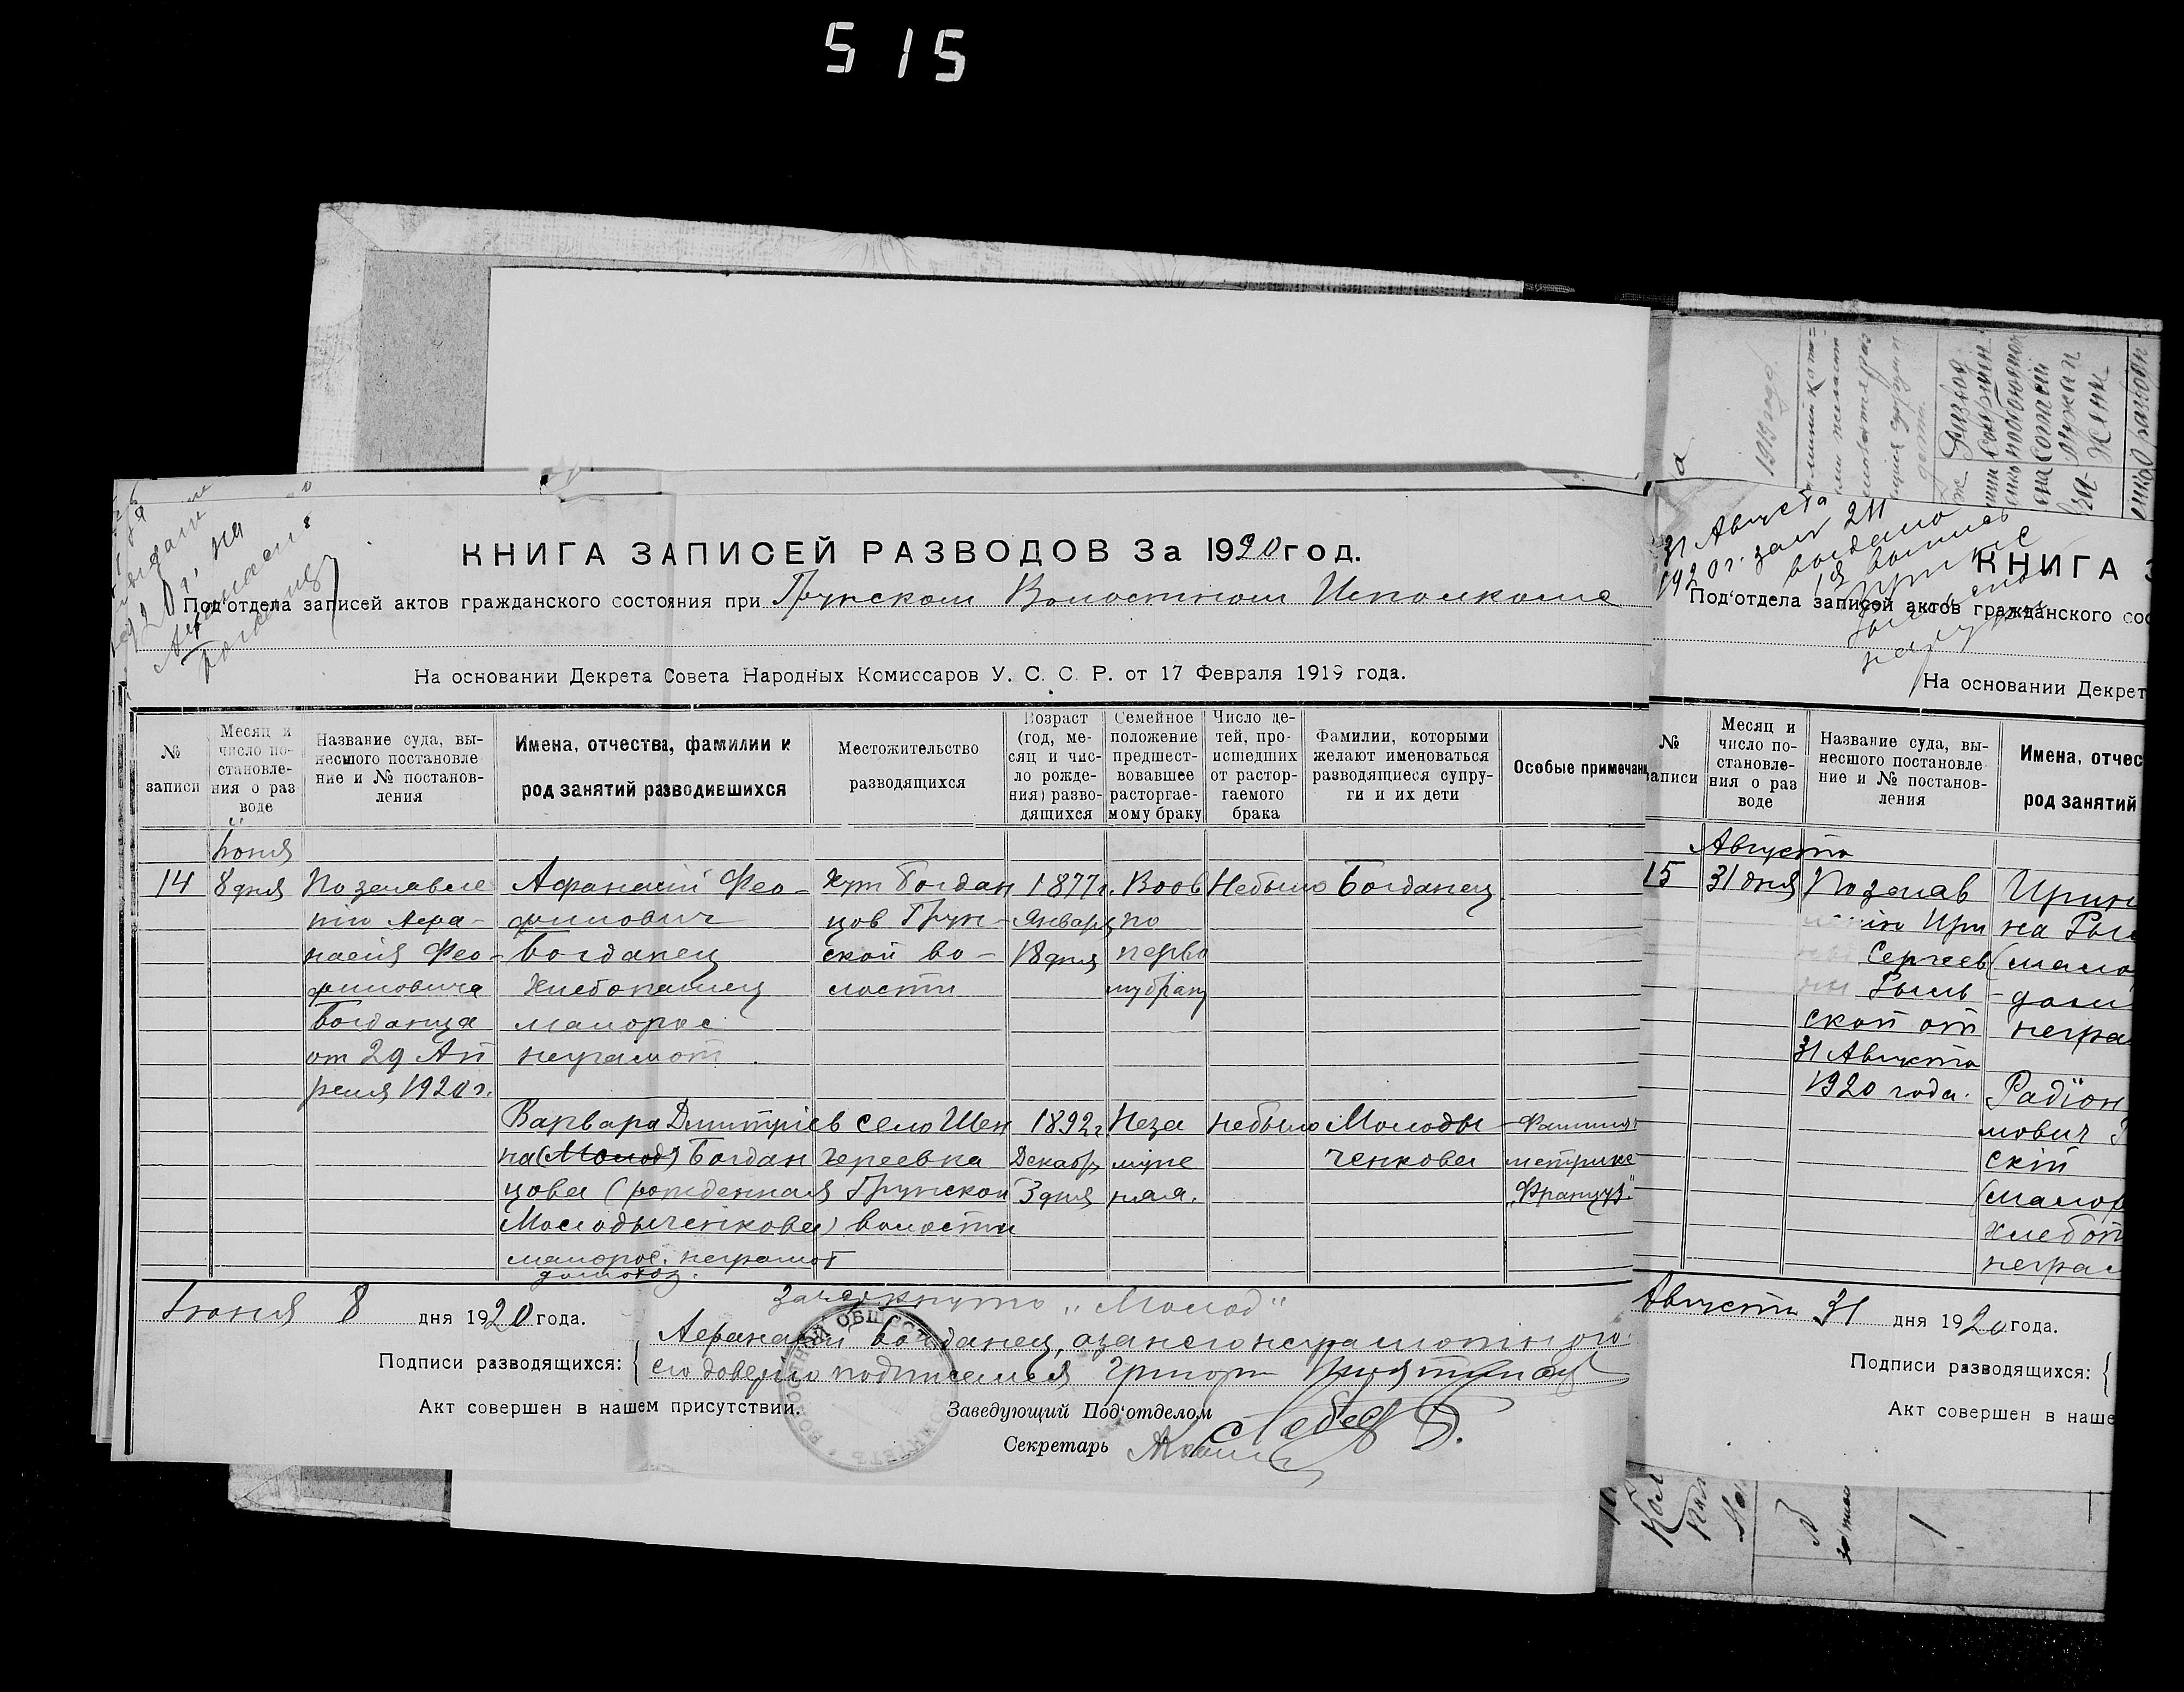 515
КНИГА ЗАПИСЕЙ РАЗВОДОВ За 1920 год.
Под'отдела записей актов гражданского состояния при Грунском Волостном Исполкоме
На основании Декрета Совета Народных Комиссаров У. С. С. Р. от 17 Февраля 1919 года.
№ записи
Месяц и число постановле-ния о раз воде
Название суда, вы-несшого постановле ние и № постанов-ления
Имена, отчества, фамилии и род занятий разводившихся
Местожительство разводящихся
Возраст (год, ме-сяц и чис-ло рожде-ния) разво-дящихся
Семейное положение предшест-вовавшее расторгае-мому браку
Число де-тей, про-исшедших от растор-гаемого брака
Фамилии, которыми желают именоваться разводящиеся супру-ги и их дети
Особые примечани
Іюня
14
8 дня
По заявле
нію Афа-
насія Фео-
филовича
Богданца
от 29 Ап
реля 1920 г.
Афанасий Фео-
филович
Богданец
Хлебопашец
малорос
неграмот.
Хут Богдан
цов Грун-
ской во-
лости
1877 г.
Января
18 дня
Вдов
по
перво
му браку
Небыло
Богданец
Варвара Дмитріев
на (Молод) Богдан
цова (рожденная
Молодыченкова)
малорос. неграмот
домохоз.
село Шен
гереевка
Грунской
волости
1892 г.
Декабр
3 дня
Неза
муже
няя.
небыло
Молоды
ченкова
Фамилия
метрике
"Француз."
Іюня 8 дня 1920 года.
Зачеркнуто "Молод"
Подписи разводящихся:
Афанасий Богданец, а за него неграмотного
его доверію подписался Григор
Акт совершен в нашем присутствии.
Заведующий Под'отделом
Секретарь
31 Августа
1920 г. за № 211
выдана
КНИГА З
Под'отдела записей актов гражданского сос
На основании Декрет
№ записи
Месяц и число по-становле-ния о раз воде
Название суда, вы-несшого постановле ние и № постанов-ления
Имена, отчес
род занятий
Августа
15
31 дня
По заяв
нію Ири
Сергеев
ской от
31 Августа
1920 года.
Ирин
на
(мало
дом
негра
Радіон
мович
скій
(малор
хлебоп
неграм
Августа 31 дня 1920 года.
Подписи разводящихся:
Акт совершен в наше